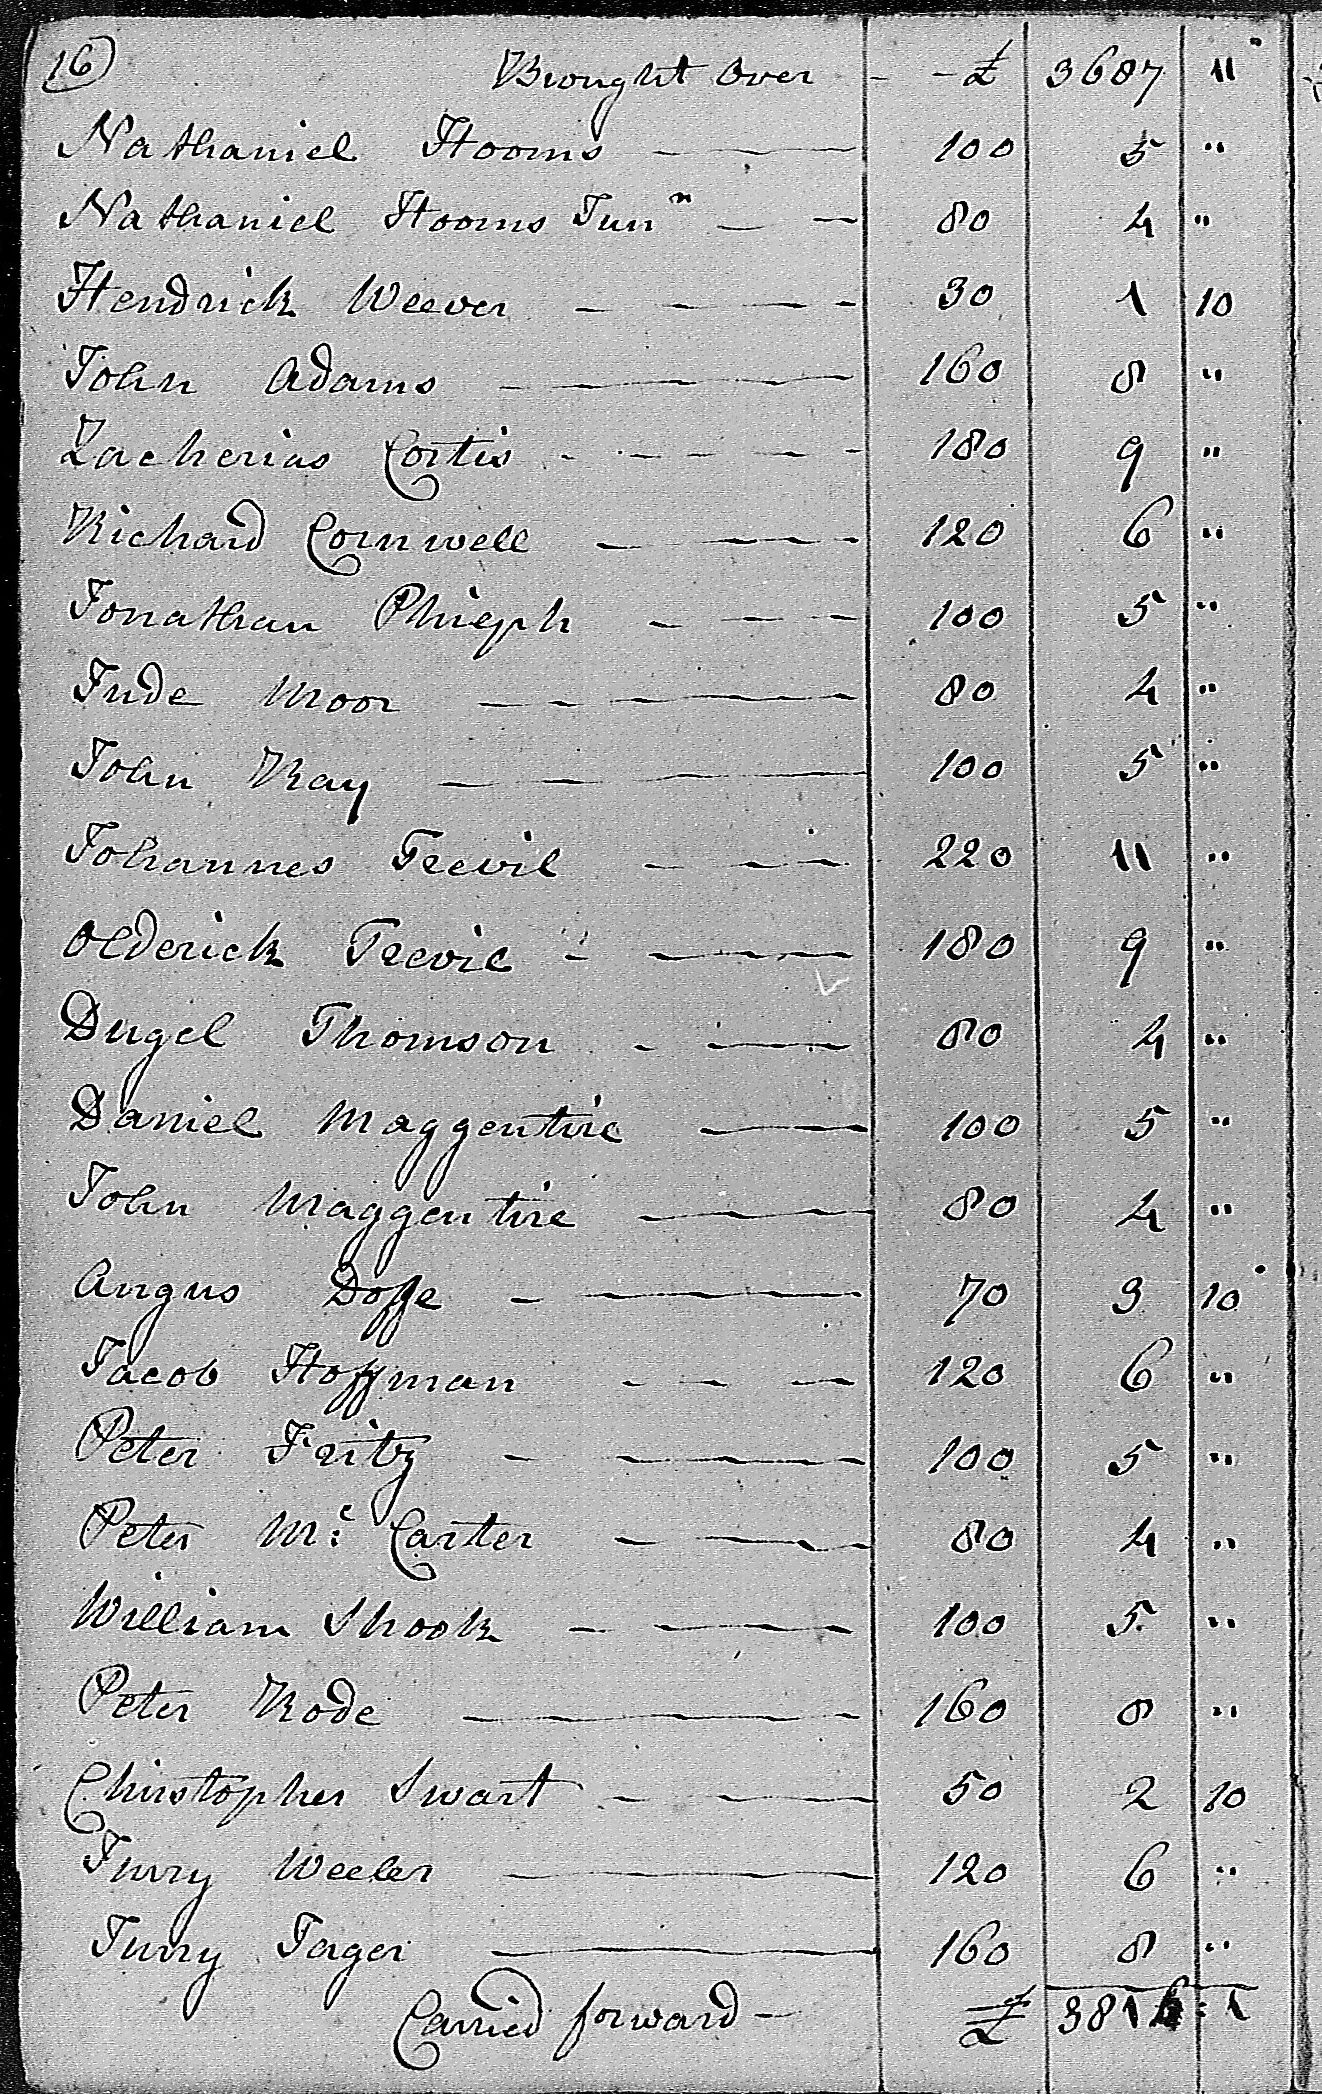 16) Brought Over - - £ 3687 11
Nathaniel Hooms — — 100 5 "
Nathaniel Hooms Junr — — 80 4 "
Hendrick Weever - — — - 30 1 10
John Adams - — — — 160 8 "
Zacherias Cortis - - - - - 180 9 "
Richard Cornwell — - — - 120 6 "
Jonathan Phieph — — — 100 5 "
Jude Moor — - — — 80 4 "
John Ray — — — — 100 5 "
Johannes Teevil — — — 220 11 "
Olderick Teevil - — — 180 9 "
Dugel Thomson - — — 80 4 "
Daniel Maggentire — — 100 5 "
John Maggentire — — — 80 4 "
Angus Doffe - — — 70 3 10
Jacob Hoffman - — — 120 6 "
Peter Fritz - — — — 100 5 "
Peter Mc Carter — — — 80 4 "
William Shook - — — — 100 5 "
Peter Rode — — — — 160 8 "
Christopher Swart — — — 50 2 10
Jurry Weeler — — — — 120 6 "
Jurry Jager — — — 160 8 "
Carried forward — £ 3816:1